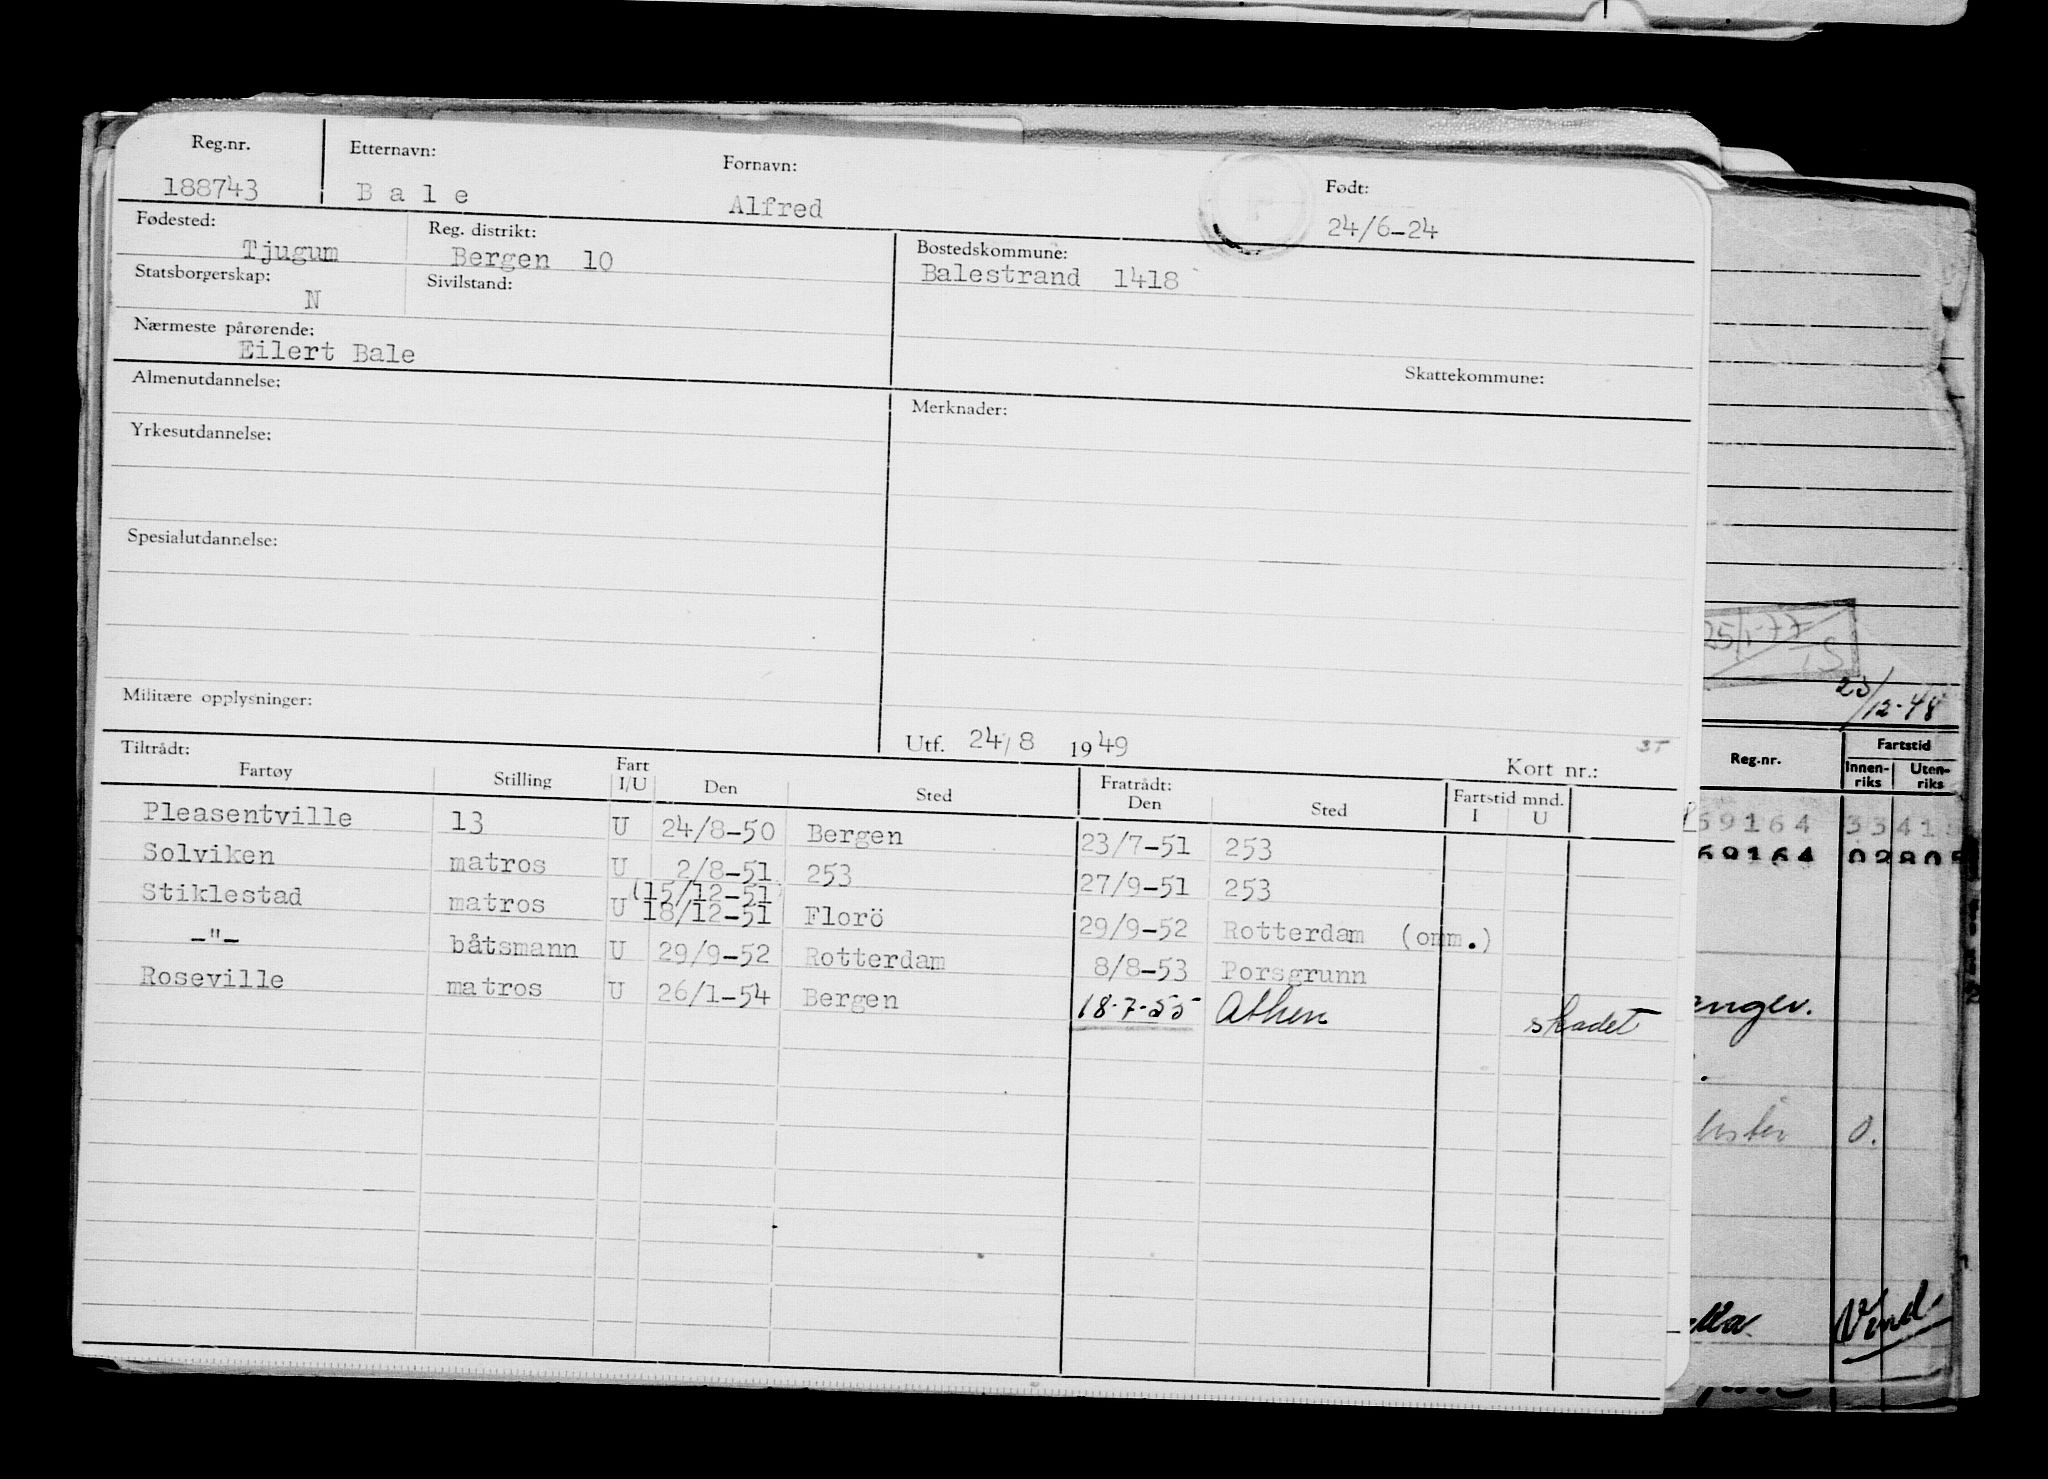 Reg.nr. Etternavn: Fornavn: Født:
188743 B a l e Alfred 24/6-24
Fødested: Reg. distrikt: Bostedskommune:
Tjugum Bergen 10 Balestrand 1418
Statsborgerskap: Sivilstand:
N
Nærmeste pårørende:
Eilert Bale
Skattekommune:
Almenutdannelse: Merknader:
Yrkesutdannelse:
Spesialutdannelse:
Militære opplysninger:
Utf. 24/8 1949 ST
Kort nr.:
Tiltrådt: Fratrådt:
Fartøy Stilling Fart I/U Den Sted Den Sted Fartstid mnd. I U
Pleasentville 13 U 24/8-50 Bergen 23/7-51 253
Solviken matros U 2/8-51 253 27/9-51 253
(15/12-51)
Stiklestad matros U 18/12-51 Florö 29/9-52 Rotterdam (omm.)
-"- båtsmann U 29/9-52 Rotterdam 8/8-53 Porsgrunn
Roseville matros U 26/1-54 Bergen 18-7-55 Athen skadet
25/1-77
23/12-48
Reg.nr. Fartstid
Innen-riks Uten-riks
69164 3341
69164 02805
enger.
0.